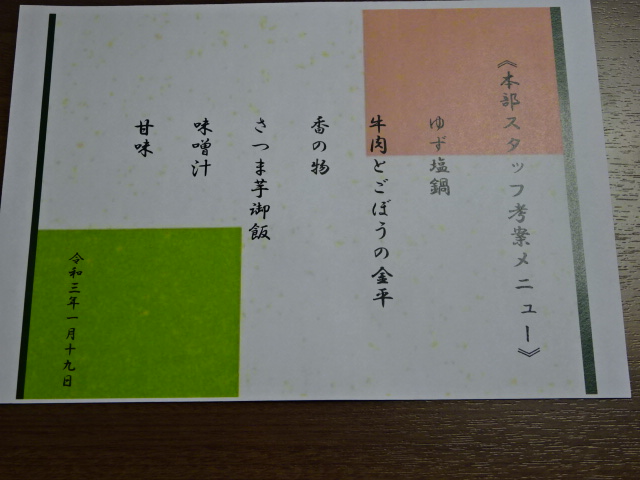 《本部スタッフ考案メニュー》
ゆず塩鍋
牛肉とごぼうの金平
香の物
さつま芋御飯
味噌汁
甘味
令和三年一月十九日